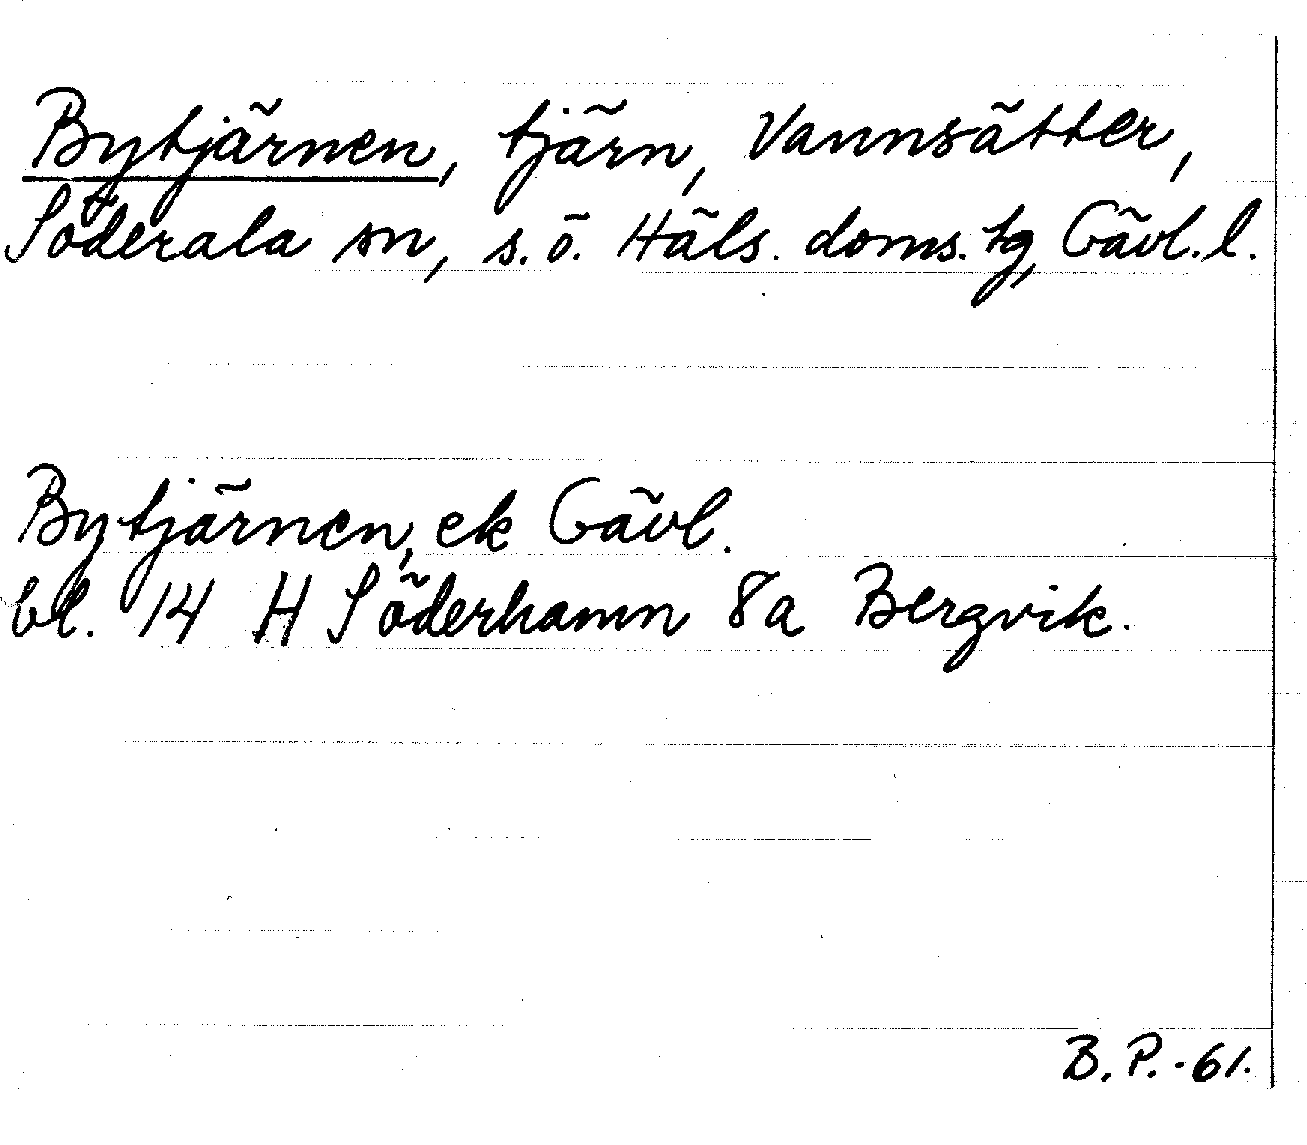 Bytjärnen, tjärn, Vannsätter,
Söderala sn, s.ö. Häls. doms.tg, Gävl.l.
Bytjärnen, ek Gävl.
bl. 14 H Söderhamn 8a Bergvik.
B.P.-61.